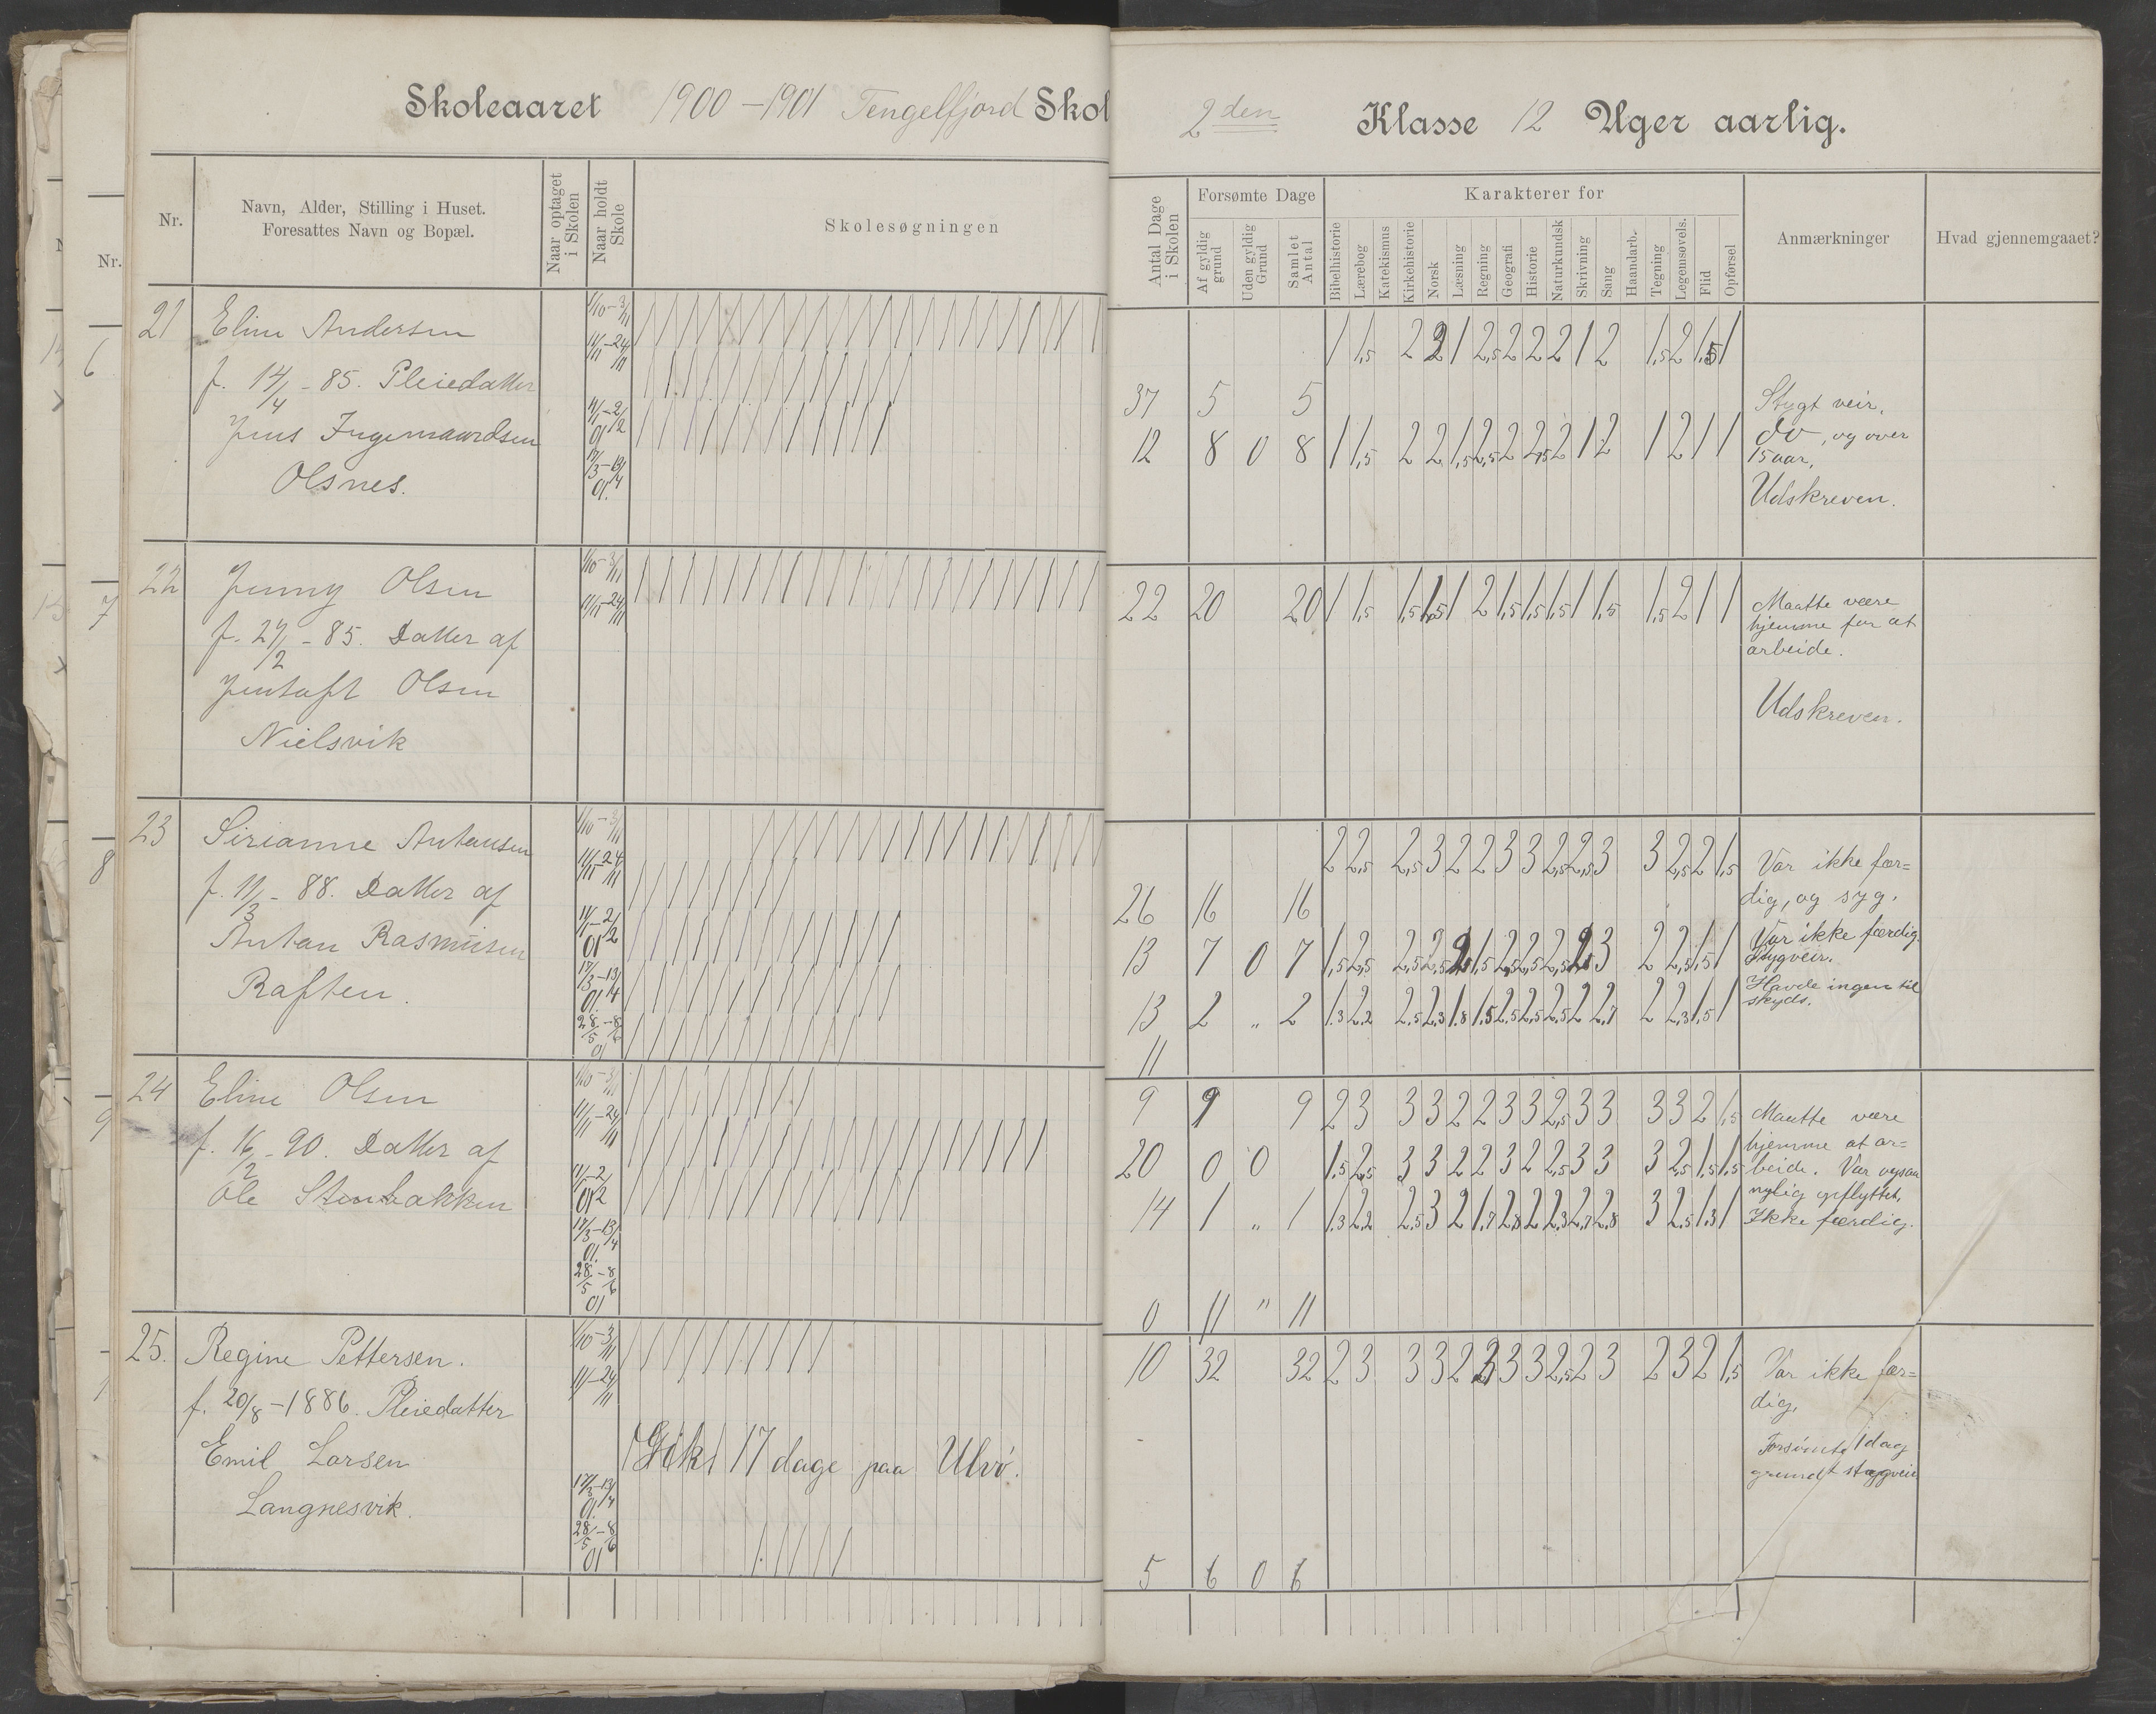 Skoleaaret 1900-1901 Tengelfjord Skol
2den Klasse 12 Uger aarlig.
Nr.
Navn, Alder, Stilling i Huset.
Foresattes Navn og Bopæl.
Naar optaget
i Skolen
Naar holdt
Skole
Skolesøgningen
Antal Dage
i Skolen
Forsømte Dage
Af gyldig
grund
Uden gyldig
Grund
Samlet
Antal
Karakterer for
Bibelhistorie
Lærebog
Katekismus
Kirkehistorie
Norsk
Læsning
Regning
Geografi
Historie
Naturkundsk
Skrivning
Sang
Haandarb.
Tegning
Legemsøvels.
Flid
Opførsel
Anmærkninger
Hvad gjennemgaaet?
21 Eline Andersen
f. 14/4 - 85. Pleiedatter
Jens Ingemaurdsen
Olsnes.
1/10-3/11
11/11-24/11
11/1-2/2 01
17/3-13/4 01.
1 1,5 2 2 1 2,5 2 2 2 1 2 1,5 2 1,5 1
37 5 5
12 8 0 8 1 1,5 2 2 1,5 2,5 2 2,5 2 1 2 1 2 1 1
Stygt veir.
do, og over
15 aar.
Udskreven.
22 Jenny Olsen
f. 27/2 - 85. Datter af
Jentoft Olsen
Nielsvik
1/10-3/11
11/11-24/11
22 20 20 1 1,5 1,5 1,5 1 2 1,5 1,5 1,5 1 1,5 1,5 2 1 1
Maatte være
hjemme for at
arbeide.
Udskreven.
23 Sirianne Antonsen
f. 11/3 - 88. Datter af
Antan Rasmussen
Raften.
1/10-3/11
11/11-24/11
11/1-2/2 01
17/3-13/4 01.
28/5-8/6 01
2 2,5 2,5 3 2 2 3 3 2,5 2,5 3 3 2,5 2 1,5
26 16 16
13 7 0 7
13 2 „ 2 1.3 2.2 2.5 2,3 1.8 1.5 2.5 2,5 2,5 2 2,7 2 2,3 1,5 1
11
Var ikke fær=
dig, og syg.
Var ikke færdig.
Stygveir.
Havde ingen til
skyds.
24 Eline Olsen
f. 16/2 - 90. Datter af
Ole Stenbakken
1/10-3/11
11/11-24/11
11/1-2/2 01
17/3-13/4 01.
28/5-8/6 01
9 9 9 2 3 3 3 2 2 3 3 2,5 3 3 3 3 2 1,5
20 0 0 1.5 2,5 3 3 2 2 3 2 2,5 3 3 3 2,5 1,5 1,5
14 1 „ 1 1.3 2.2 2.5 3 2 1,7 2,8 2 2,3 2,7 2,8 3 2,5 1,3 1
0 11 " 11
Maatte være
hjemme at ar=
beide. Var ogsaa
nylig opflyttet.
Ikke færdig.
25. Regine Pettersen.
f. 20/8 - 1886. Pleiedatter
Emil Larsen
Langnesvik.
1/10-3/11
11/11-24/11
17/3-13/4 01.
28/5-8/6 01
Gik 17 dage paa Ulvö.
10 32 32 2 3 3 3 2 3 3 3 2,5 2 3 2 3 2 1,5
5 6 0 6
Var ikke fær=
dig.
Forsömte 1 dag
grundt stygveir
Nr.
6
7
8
9